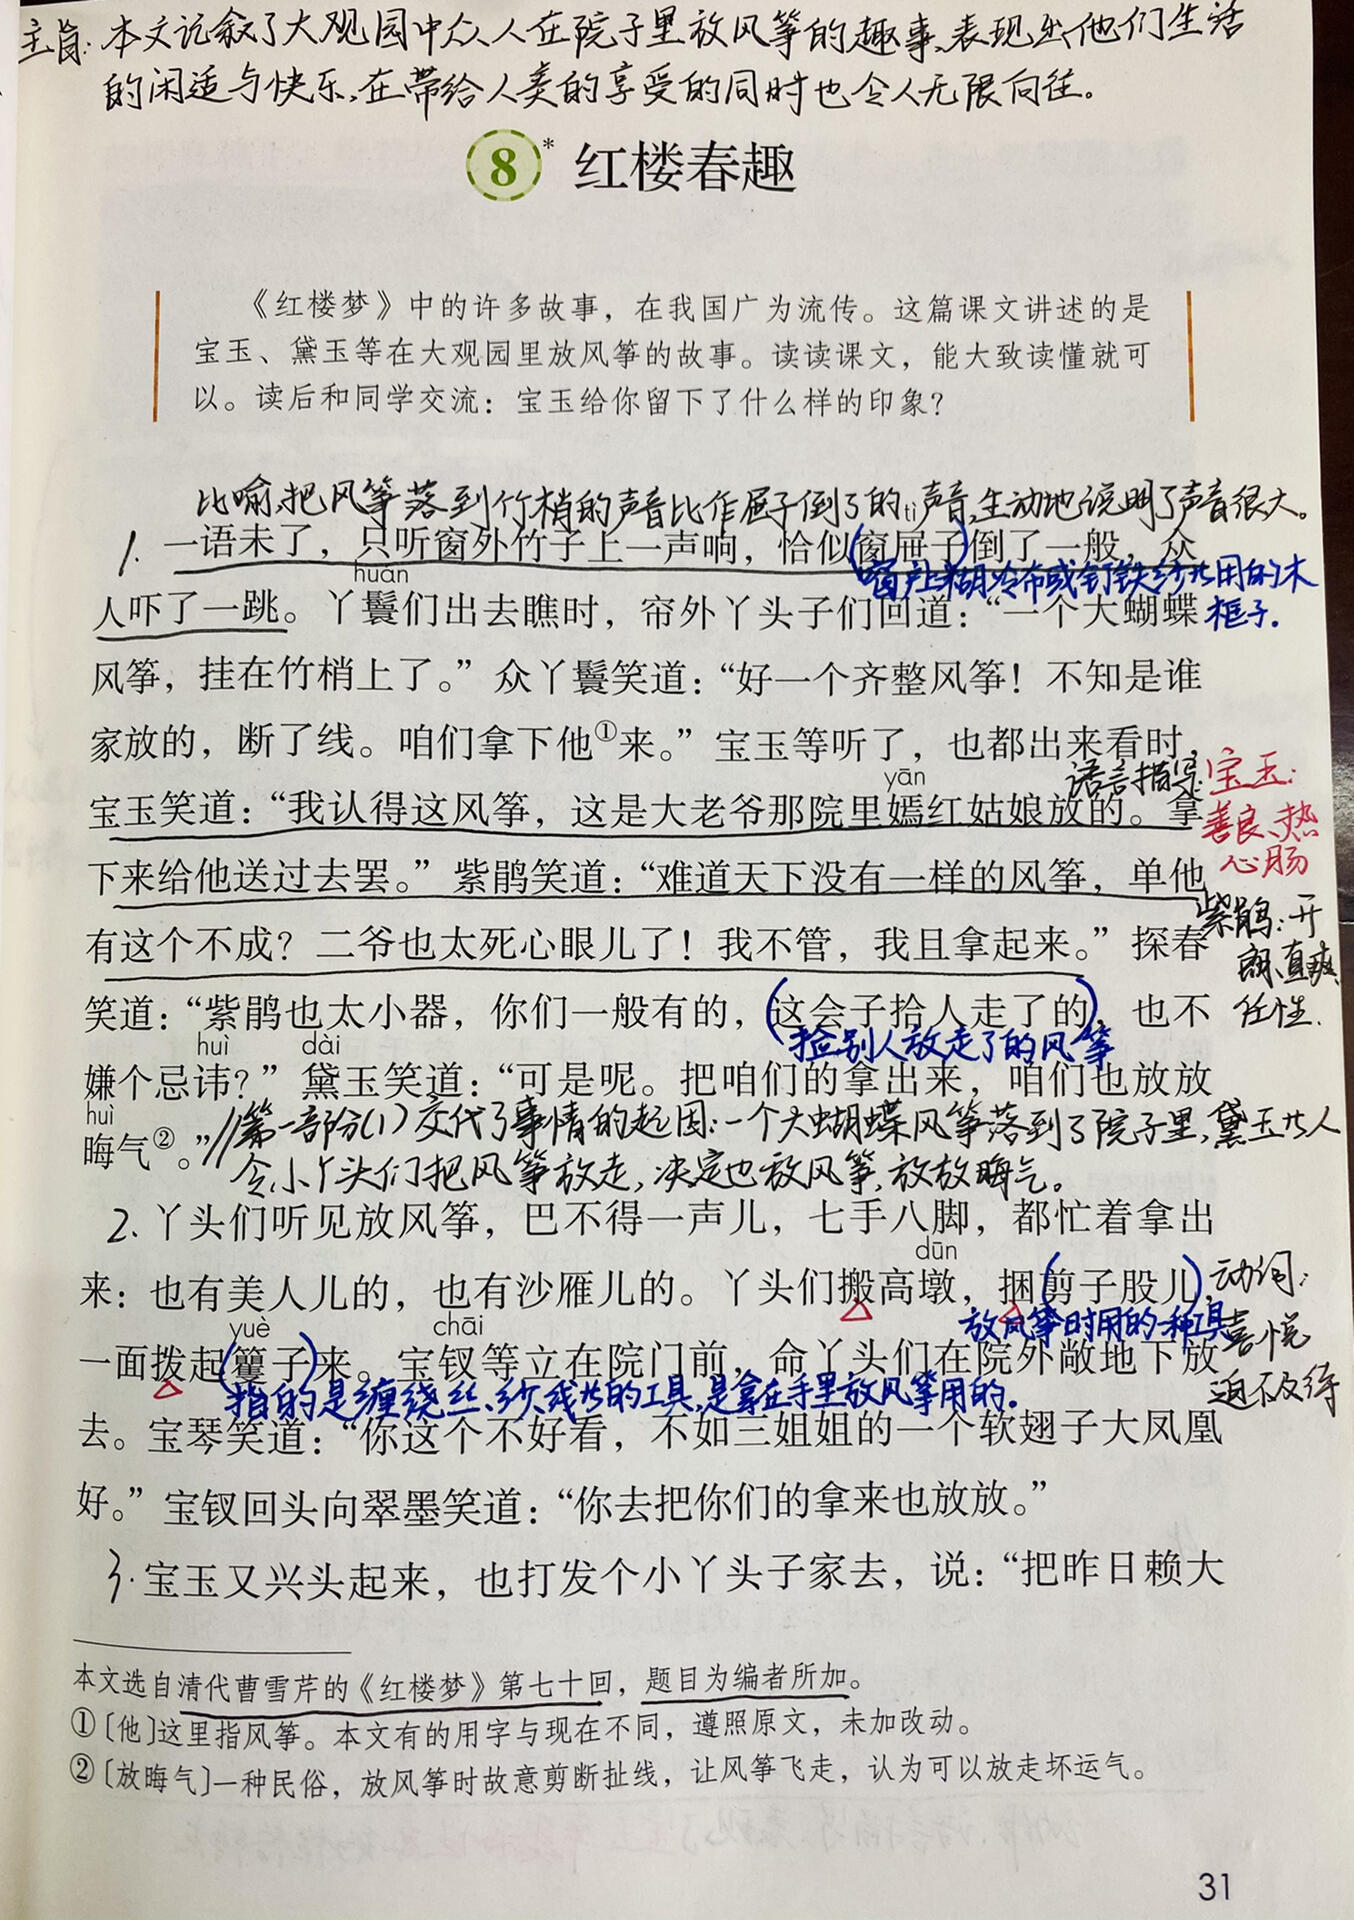 主旨:本文记叙了大观园中众人在院子里放风筝的趣事,表现出他们生活
的闲适与快乐,在带给人类的享受的同时也令人无限向往。
8* 红楼春趣
《红楼梦》中的许多故事，在我国广为流传。这篇课文讲述的是
宝玉、黛玉等在大观园里放风筝的故事。读读课文，能大致读懂就可
以。读后和同学交流：宝玉给你留下了什么样的印象？
比喻,把风筝落到竹梢的声音比作屉子倒了的声音,生动地说明了声音很大。
tì
1. 一语未了，只听窗外竹子上一声响，恰似(窗屉子)倒了一般，众
窗户上糊冷布或钉铁纱等用的木
框子.
huán
人吓了一跳。丫鬟们出去瞧时，帘外丫头子们回道：“一个大蝴蝶
风筝，挂在竹梢上了。”众丫鬟笑道：“好一个齐整风筝！不知是谁
家放的，断了线。咱们拿下他①来。”宝玉等听了，也都出来看时，
yān
语言描写:
宝玉:
善良、热
心肠
宝玉笑道：“我认得这风筝，这是大老爷那院里嫣红姑娘放的。拿
下来给他送过去罢。”紫鹃笑道：“难道天下没有一样的风筝，单他
紫鹃:开
朗、直爽、
任性.
有这个不成？二爷也太死心眼儿了！我不管，我且拿起来。”探春
笑道：“紫鹃也太小器，你们一般有的，(这会子拾人走了的)，也不
捡别人放走了的风筝
huì dài
嫌个忌讳？”黛玉笑道：“可是呢。把咱们的拿出来，咱们也放放
huì
晦气②。”//第一部分(1)交代了事情的起因:一个大蝴蝶风筝落到了院子里,黛玉等人
令小丫头们把风筝放走,决定也放风筝,放放晦气。
2. 丫头们听见放风筝，巴不得一声儿，七手八脚，都忙着拿出
dūn
来：也有美人儿的，也有沙雁儿的。丫头们搬高墩，捆(剪子股儿)，
放风筝时用的一种工具
动词:
喜悦
迫不及待
yuè chāi
一面拨起(籰子)来。宝钗等立在院门前，命丫头们在院外敞地下放
指的是缠绕丝、纱、线等的工具,是拿在手里放风筝用的.
去。宝琴笑道：“你这个不好看，不如三姐姐的一个软翅子大凤凰
好。”宝钗回头向翠墨笑道：“你去把你们的拿来也放放。”
3. 宝玉又兴头起来，也打发个小丫头子家去，说：“把昨日赖大
本文选自清代曹雪芹的《红楼梦》第七十回，题目为编者所加。
①〔他〕这里指风筝。本文有的用字与现在不同，遵照原文，未加改动。
②〔放晦气〕一种民俗，放风筝时故意剪断扯线，让风筝飞走，认为可以放走坏运气。
31